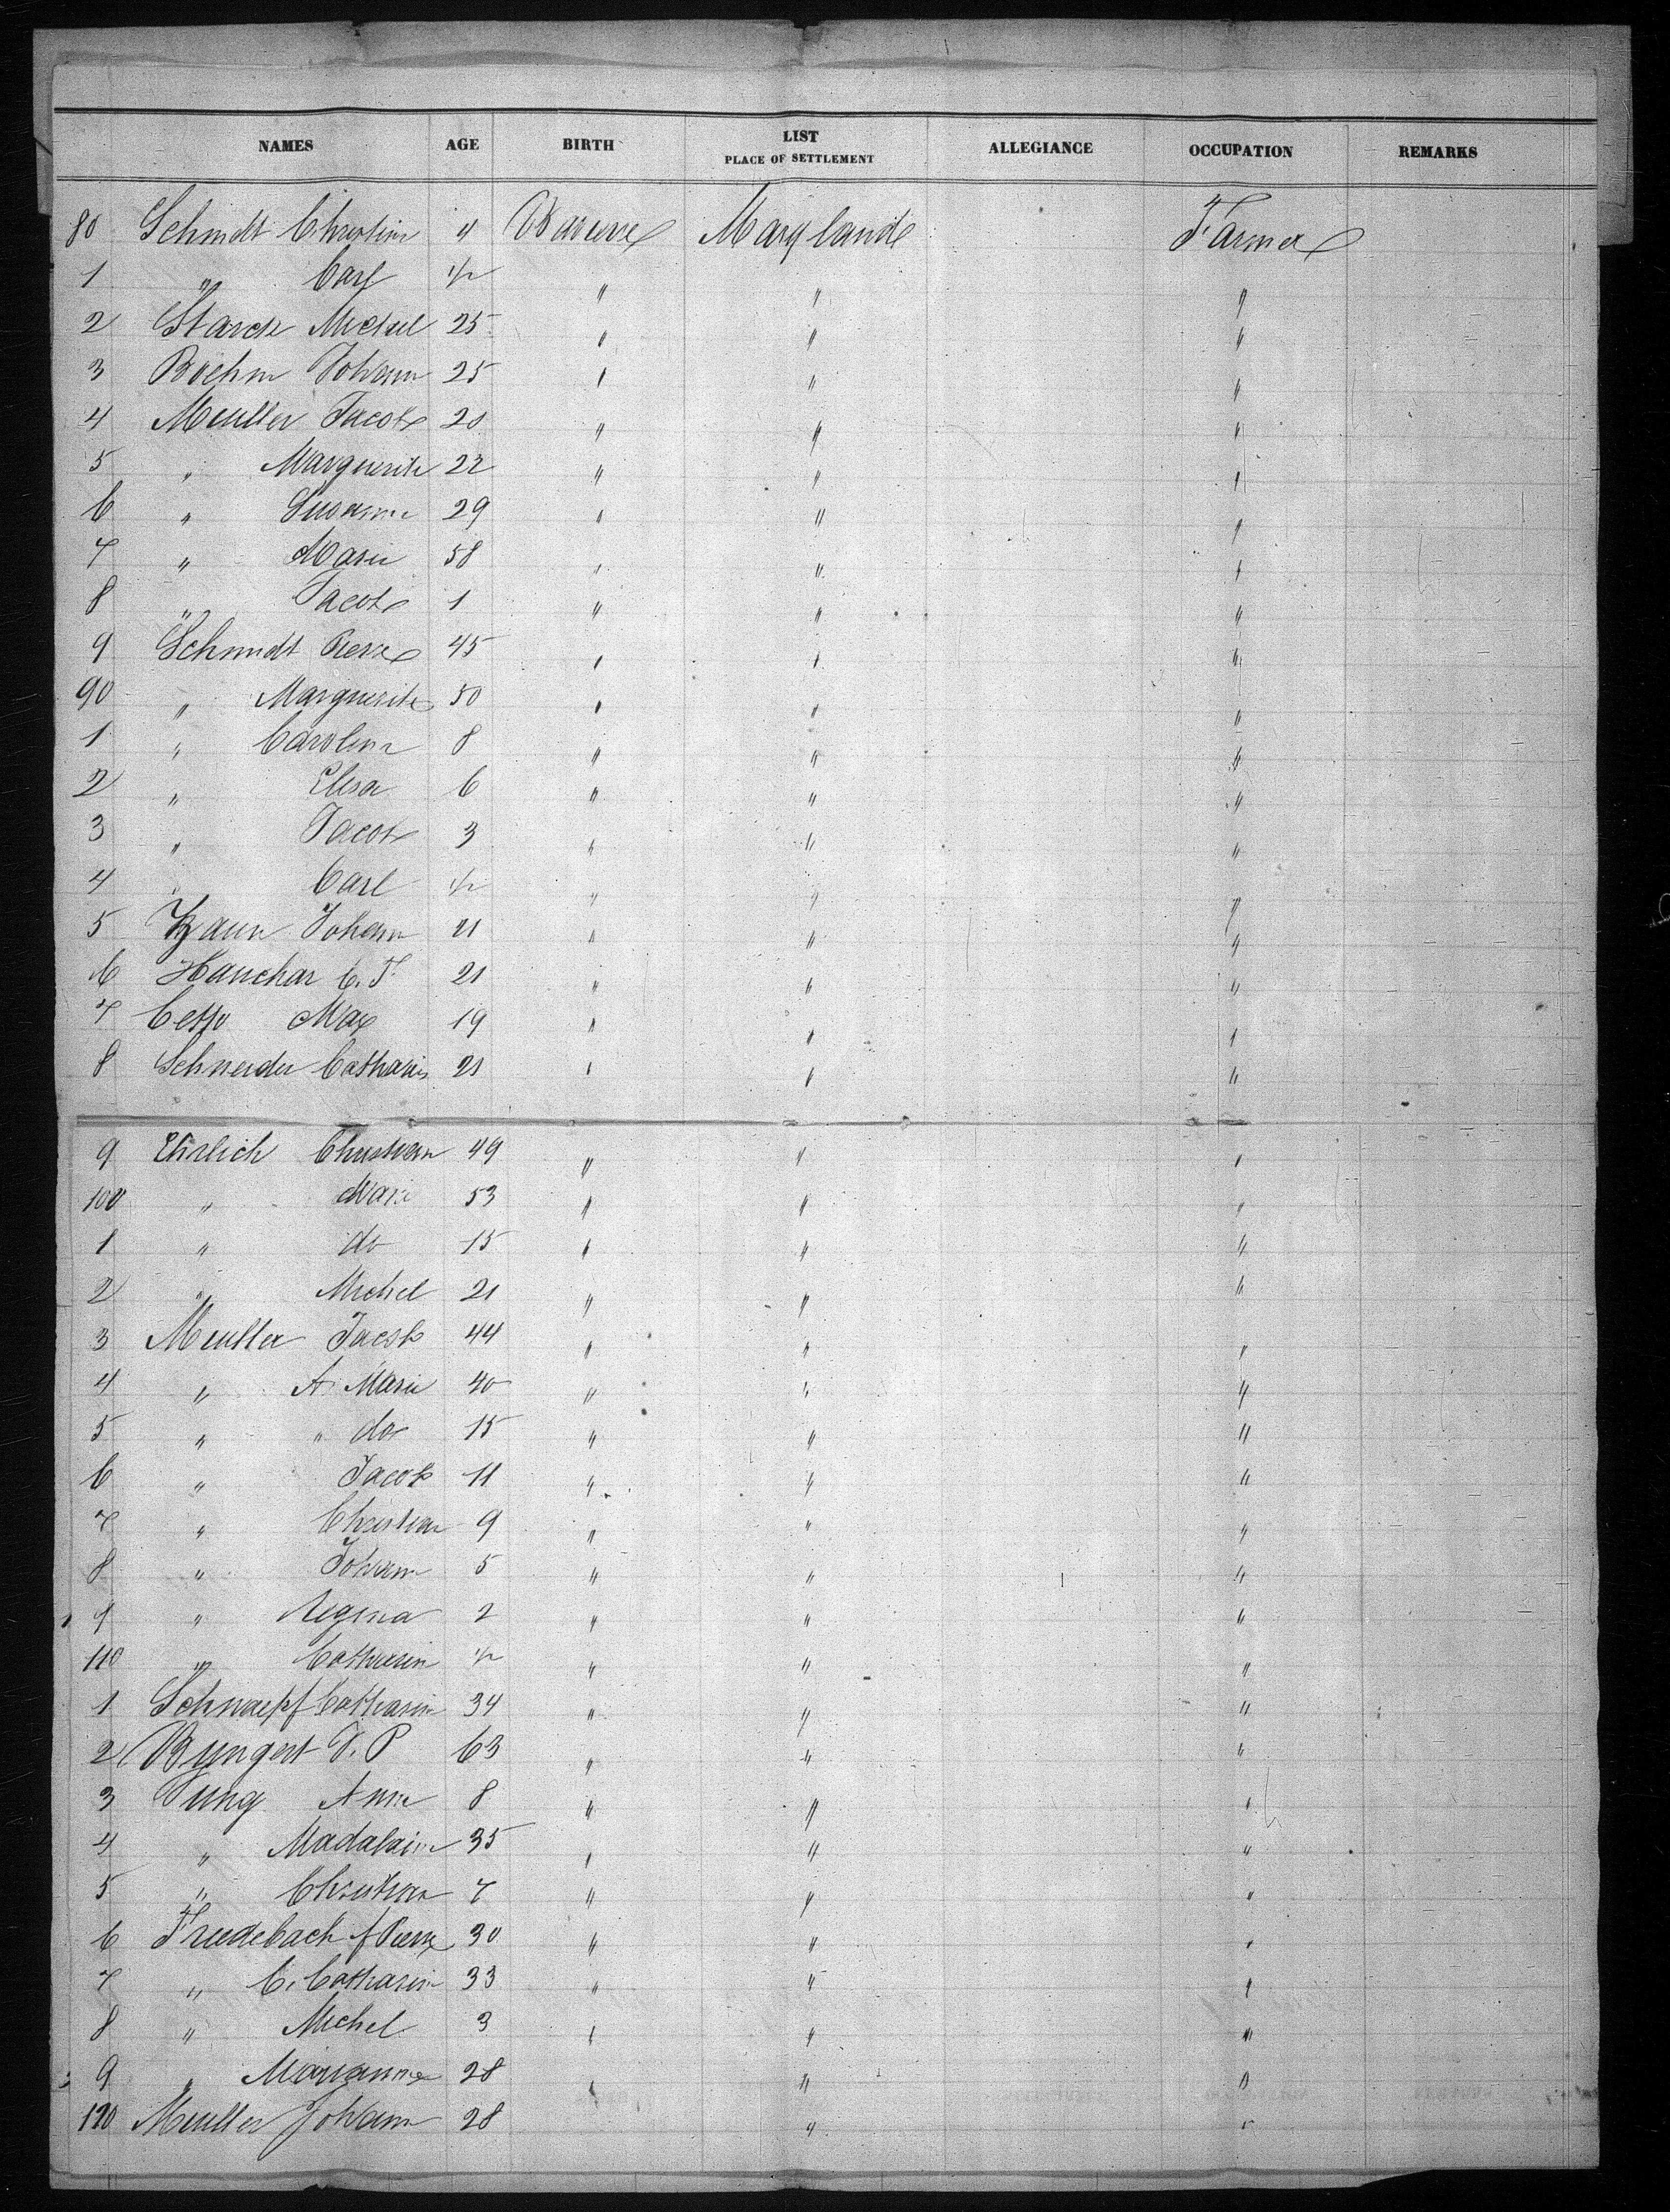 NAMES AGE BIRTH LIST PLACE OF SETTLEMENT ALLEGIANCE OCCUPATION REMARKS
80 Schmidt Christine 4 Baviere Maryland Farmer
1 " Carl 1/2 " " "
2 Starck Michel 25 " " "
3 Boehm Johann 25 " " "
4 Muller Jacob " " "
5 " Marguerite 22 " " "
6 " Susanne 29 " " "
7 " Marie 58 " " "
8 " Jacob 1 " " "
9 Schmidt Pierre 45 " " "
90 " Marguerite 50 " " "
1 " Carolin 8 " " "
2 " Elisa 6 " " "
3 " Jacob 3 " " "
4 " Carl 1/2 " " "
5 Johann 21 " " "
6 21 " " "
7 Max 19 " " "
8 Schneider Catharin 21 " " "
9 Ehrlich Christian 49 " " "
100 " Marie 53 " " "
1 " do 15 " " "
2 " Michel 21 " " "
3 Muller Jacob 44 " " "
4 " A. Marie 40 " " "
5 " " do 15 " " "
6 " Jacob 11 " " "
7 " Christian 9 " " "
8 " Johann 5 " " "
9 " Regina 2 " " "
110 " Catharin 1/2 " " "
1 Schnaepf Catharin 34 " " "
2 Bungert J. P 63 " " "
3 Jung Anne 8 " " "
4 " Madalaine 35 " " "
5 " Christian 7 " " "
6 Friedebach Pierre 30 " " "
7 " C. Catharin 33 " " "
8 " Michel 3 " " "
9 " Marianne 28 " " "
120 Muller Johann 28 " "